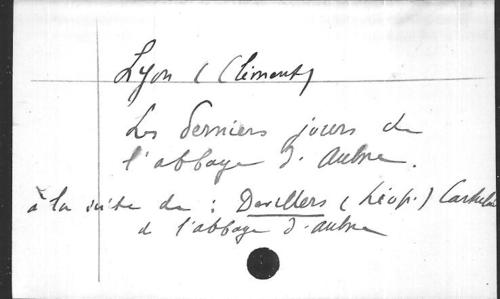 Lyon (Clément)
Les derniers jours de
l'abbaye d'Aulne.
à la suite de : Devillers (Léop.) Cartulaire
de l'abbaye d'Aulne